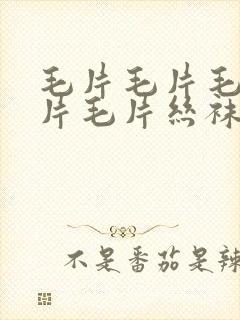 毛片毛片毛
片毛片丝袜
不是番茄是辣